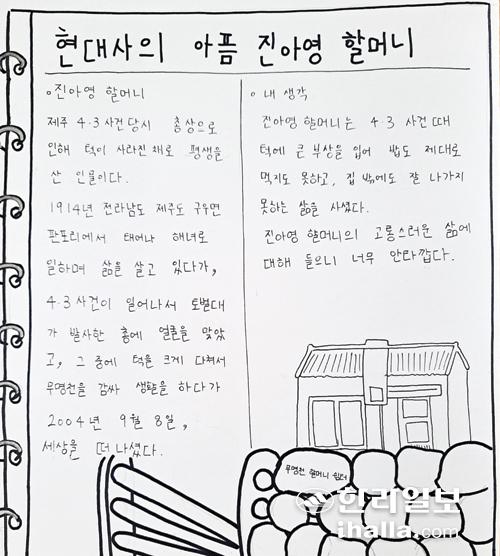 현대사의 아픔 진아영 할머니
◦진아영 할머니
제주 4·3사건 당시 총상으로
인해 턱이 사라진채로 평생을
산 인물이다.
1914년 전라남도 제주도 구우면
판포리에서 태어나 해녀로
일하며 삶을 살고 있다가,
4·3사건이 일어나서 토벌대
가 발사한 총에 얼굴을 맞았
고, 그 중에 턱을 크게 다쳐서
무명천을 감싸 생활을 하다가
2004년 9월 8일,
세상을 떠나셨다.
◦ 내 생각
진아영 할머니는 4·3 사건 때
턱에 큰 부상을 입어 밥도 제대로
먹지도 못하고, 집 밖에도 잘 나가지
못하는 삶을 사셨다.
진아영 할머니의 고통스러운 삶에
대해 들으니 너무 안타깝다.
무명천 할머니 쉼터
한라일보
ihalla.com